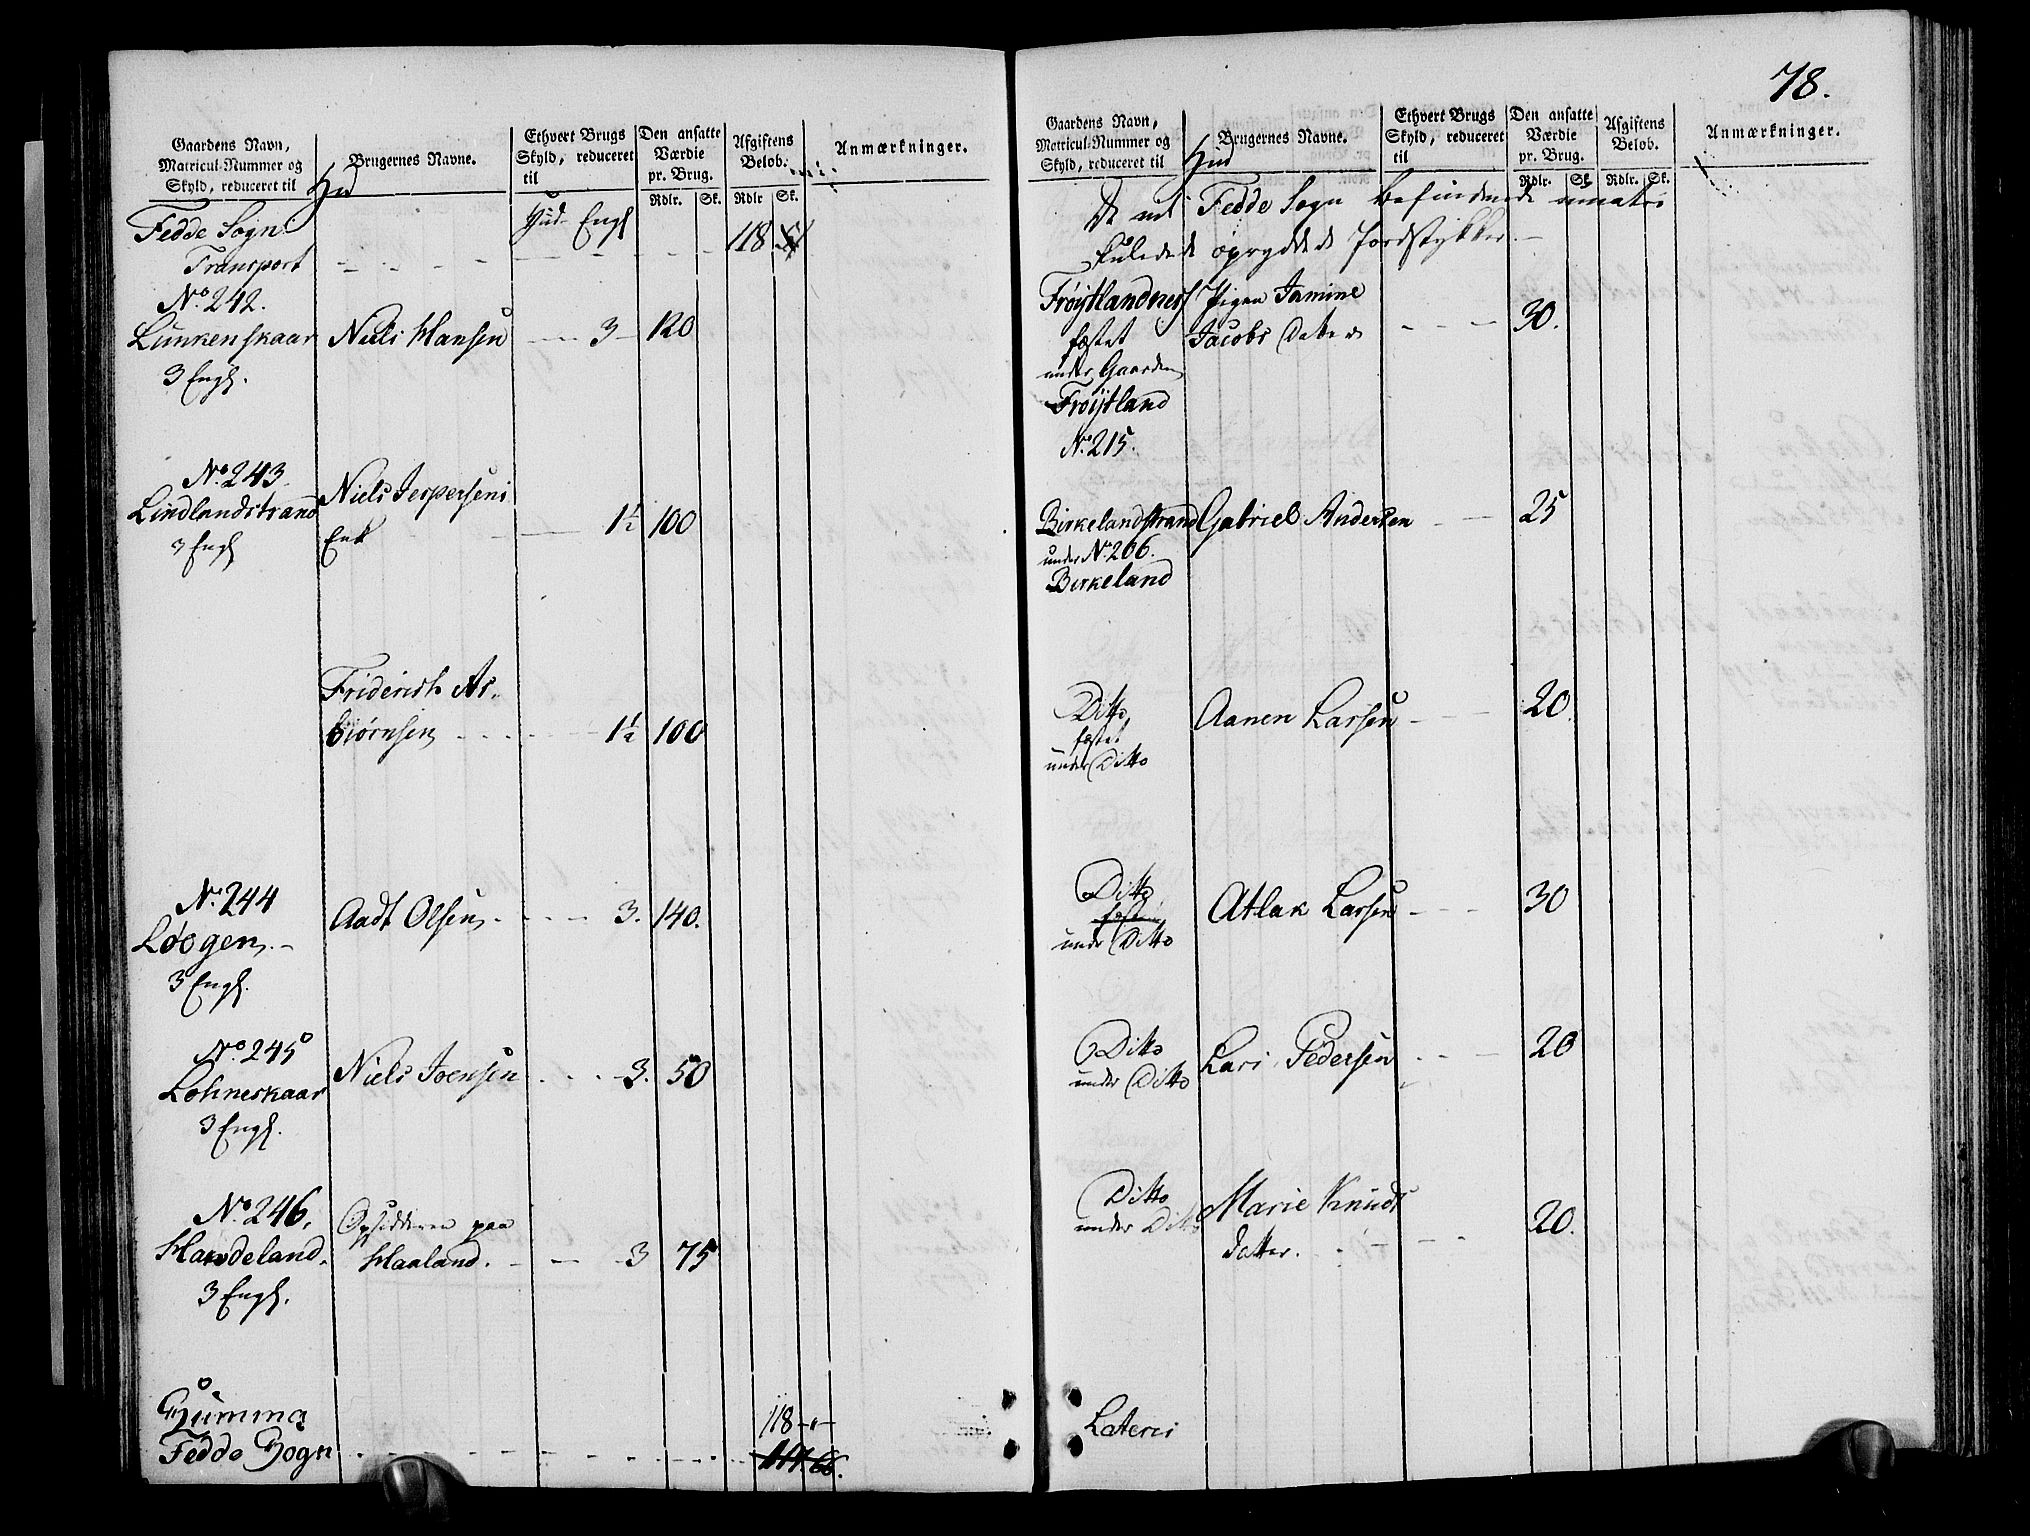 Gaardens Navn,
Matricul-Nummer og
Skyld, reduceret til
Hud
Brugernes Navne.
Ethvert Brugs
Skyld, reduceret
til
Hud Engl
Den ansatte
Værdie
pr. Brug.
Rdlr. Sk.
Afgiftens
Beløb.
Rdlr Sk.
Anmærkninger.
Fedde Sogn
Transport 118
No. 242.
Lunkenskaar Niels Hansen 3 120
3 Engl.
No. 243.
Lindlandstrand Niels Jespersens
3 Engl Enk 1½ 100
Friderich As-
biørnsen 1½ 100
No. 244
Løogen Aadt Olsen 3. 140.
3 Engl.
No. 245
Lohneskaar Niels Ivensen 3. 50
3 Engl.
No. 246.
Handeland Opsidderen paa
Haaland. 3 75
3 Engl.
Summa 118
Fedde Sogn
78.
Gaardens Navn,
Matricul-Nummer og
Skyld, reduceret til
Hud
Brugernes Navne.
Ethvert Brugs
Skyld, reduceret
til
Den ansatte
Værdie
pr. Brug.
Rdlr. Sk.
Afgiftens
Beløb.
Rdlr. Sk.
Anmærkninger.
De udi Fedde Sogn befindende umatri
kulerede opryddede Jordstykker.
Frøjtlandnes Pigen Jamine
fæstet Jacobs Datter 30.
under Gaarden
Frøijtland
No. 215.
Birkelandstrand Gabriel Andersen 25
under No. 206.
Birkeland
Ditto Aanen Larsen 20.
fæstet
under Ditto
Ditto Atlak Larsen 30
under Ditto
Ditto Lars Pedersen 20
under Ditto
Ditto Marie Knuds
under Ditto datter. 20.
Lateris